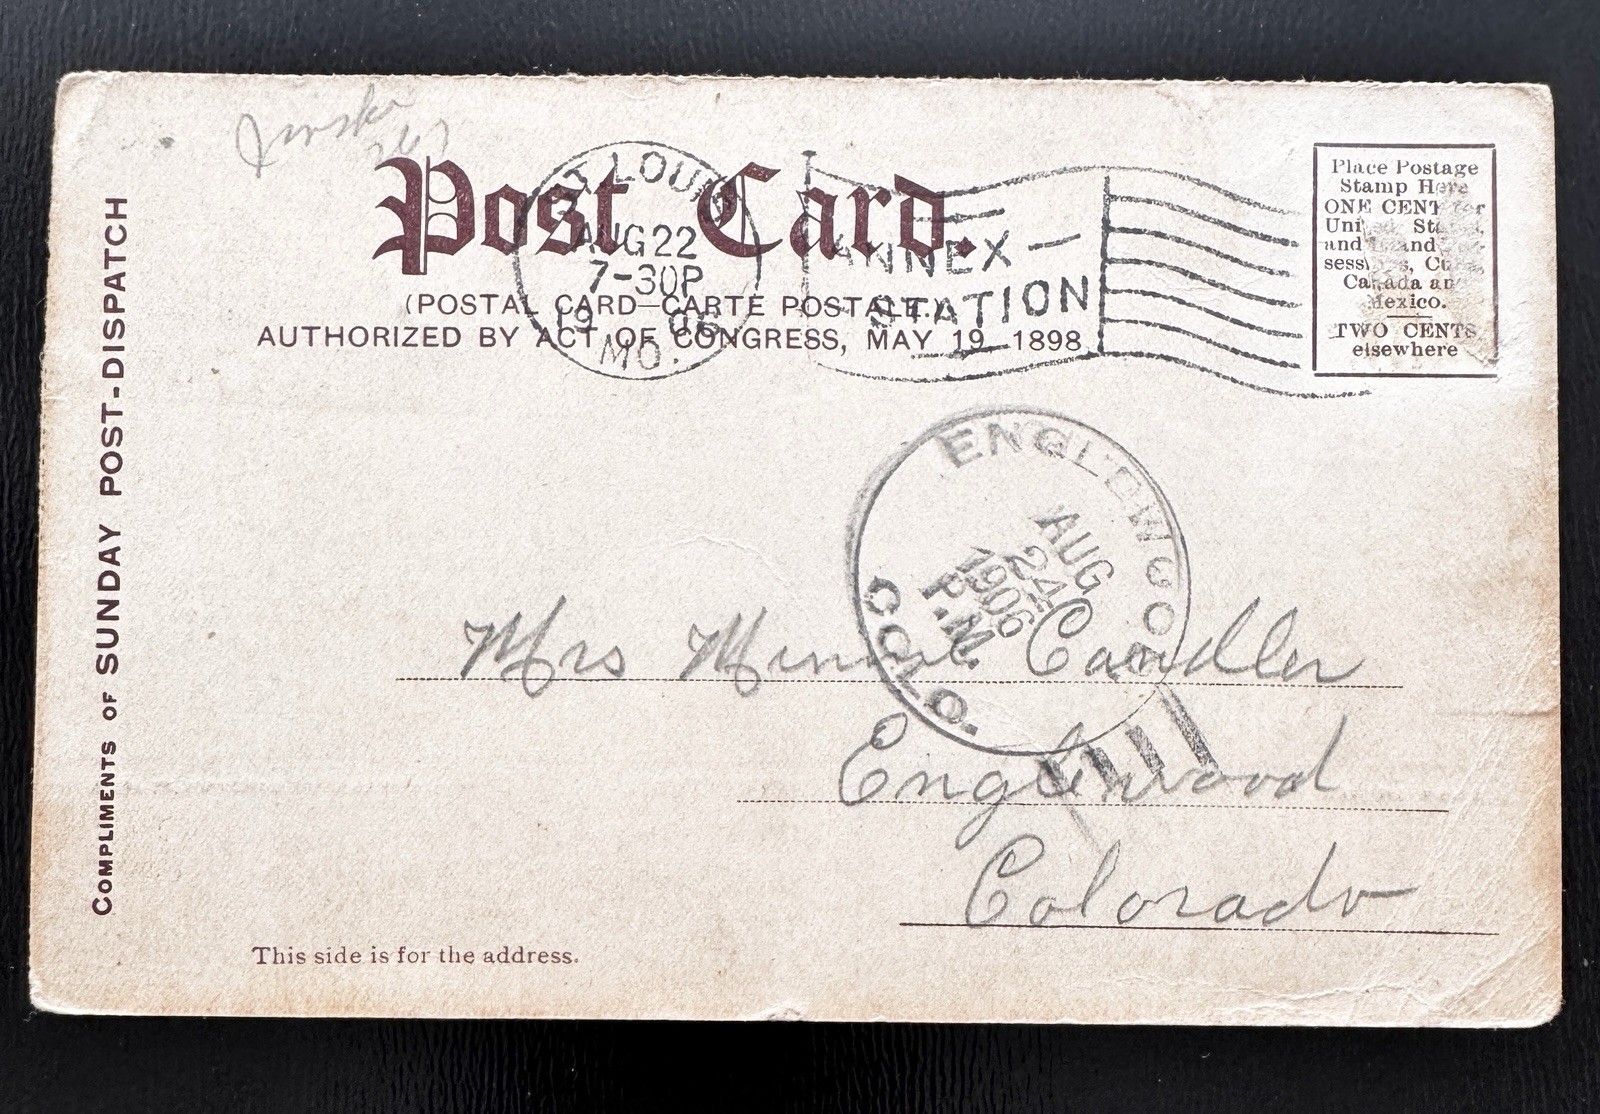 Post Card.
(POSTAL CARD—CARTE POSTALE.)
AUTHORIZED BY ACT OF CONGRESS, MAY 19 1898
ST LOUIS
AUG 22
7-30P
19 06
MO.
ANNEX
STATION
Place Postage
Stamp Here
ONE CENT for
United States,
and Island Pos-
sessions, Cuba,
Canada and
Mexico.
TWO CENTS
elsewhere
COMPLIMENTS OF SUNDAY POST-DISPATCH
ENGLEWOOD
AUG
24
1906
P.M.
COLO.
Mrs Minnie Candler
Englewood
Colorado
This side is for the address.